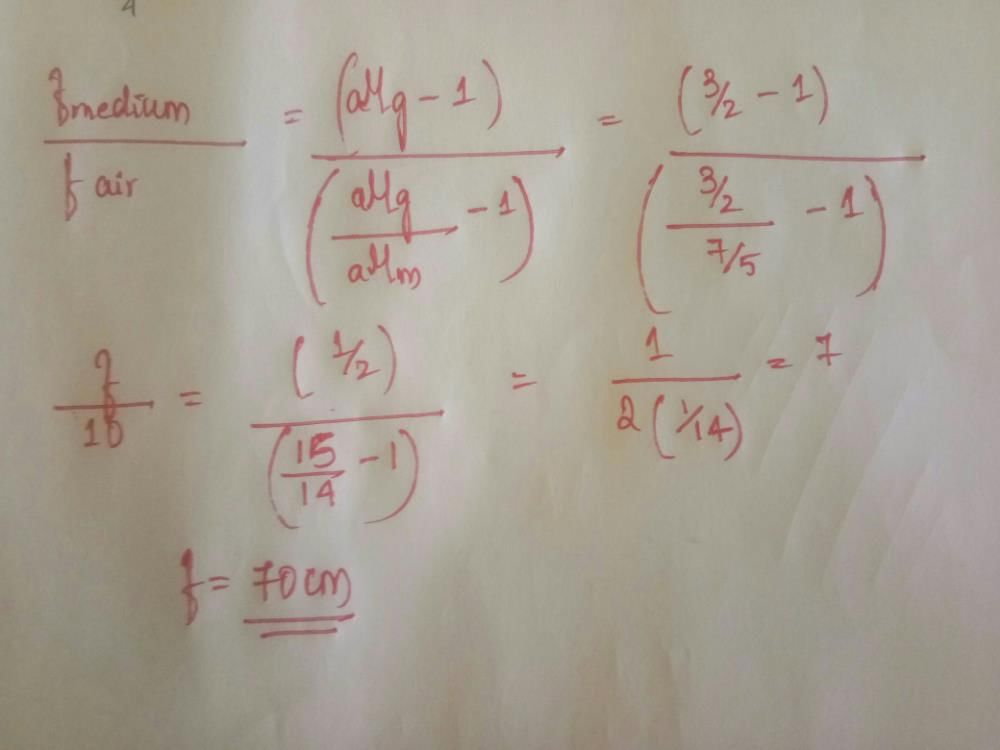 4
fmedium / f air = (aμg - 1) / (aμg / aμm - 1) = (3/2 - 1) / ((3/2) / (7/5) - 1)
f / 10 = (1/2) / (15/14 - 1) = 1 / 2(1/14) = 7
f = 70cm